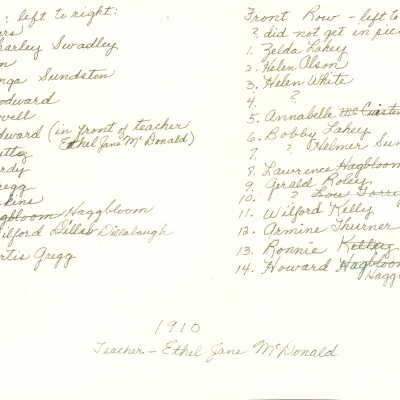 : left to right:
harley Swadley
nga Sundston
odward
velt
dward (in front of teacher
Ethel Jane McDonald)
rdy
regg
kins
gbloom Haggbloom
ilford Diller Dillabaugh
rtis Gregg
Front Row - left to
? did not get in pic
1. Zelda Lahey
2. Helen Olson
3. Helen White
4. ?
5. Annabelle
6. Bobby Lahey
7. ? Helmer Sun
8. Lawrence Hagbloom
9. Gerald Roley
10. ?
11. Wilford Kelly
12. Armine Thurner
13. Ronnie Kelley
14. Howard Hagbloom
Hagg
1910
Teacher - Ethel Jane McDonald